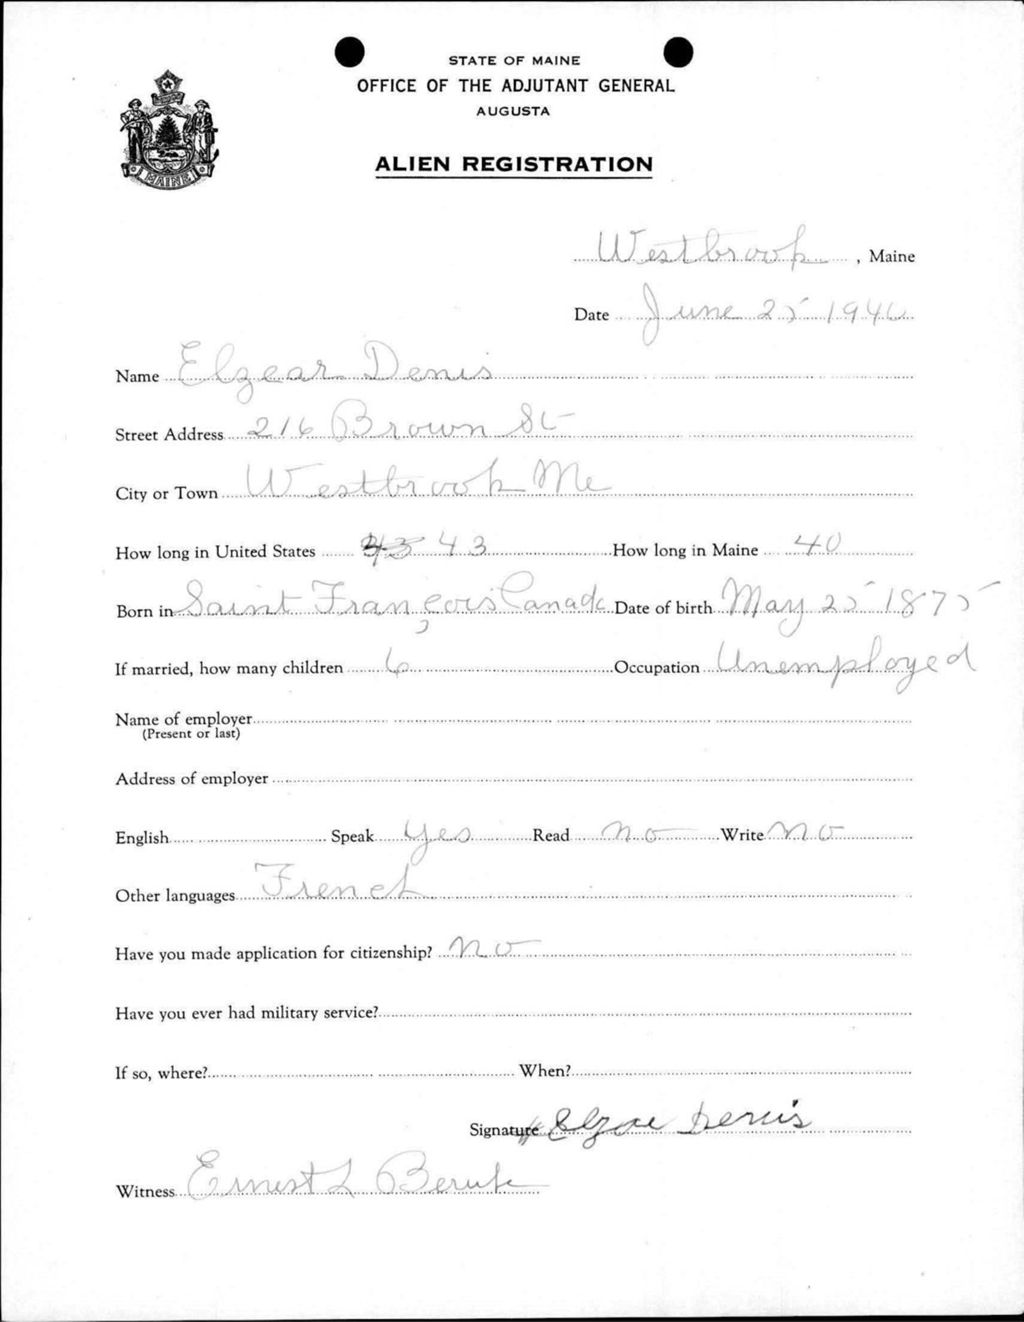 STATE OF MAINE
OFFICE OF THE ADJUTANT GENERAL
AUGUSTA
ALIEN REGISTRATION
Westbrook, Maine
Date June 25 1940
Name Elzear Denis
Street Address 216 Brown St
City or Town Westbrook Me
How long in United States 43 43 How long in Maine 40
Born in Saint François Canada Date of birth May 25 1875
If married, how many children 6 Occupation Unemployed
Name of employer
(Present or last)
Address of employer
English Speak Yes Read no Write no
Other languages French
Have you made application for citizenship? no
Have you ever had military service?
If so, where? When?
Signature Denis
Witness Ernest L
MAINE